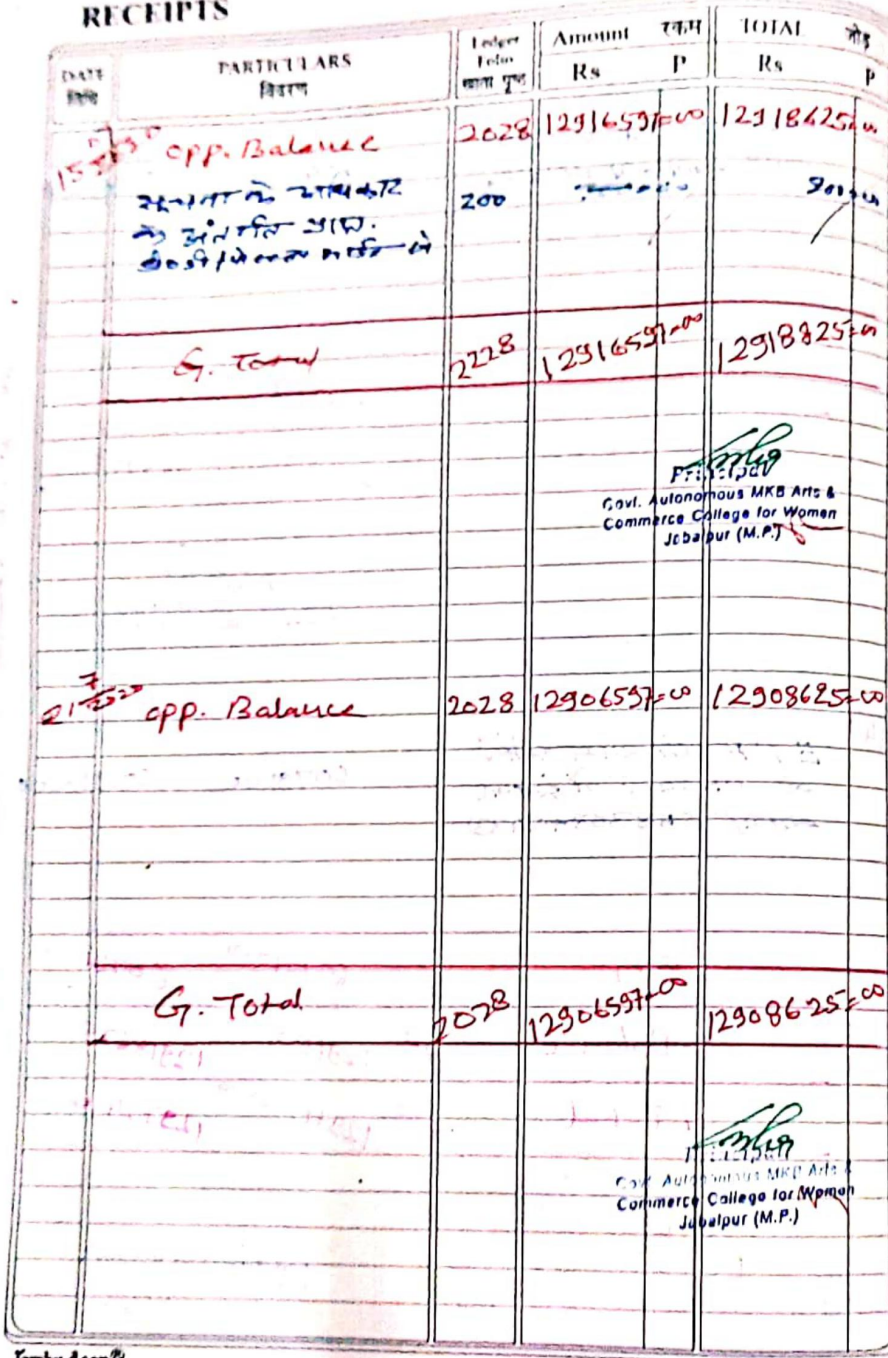 RECEIPTS
DATE तिथि PARTICULARS विवरण Ledger Folio खाता पृष्ठ Amount रकम Rs P TOTAL जोड़ Rs P
opp. Balance 2028 12916597=00 12918625=00
सूचना के अधिकार 200
के अंतर्गत प्राप्त
G. Total 2228 12916597=00 12918825=00
Principal
Govt. Autonomous MKB Arts &
Commerce College for Women
Jabalpur (M.P.)
opp. Balance 2028 12906597=00 12908625=00
G. Total 2028 12906597=00 12908625=00
Principal
Govt. Autonomous MKB Arts &
Commerce College for Women
Jabalpur (M.P.)